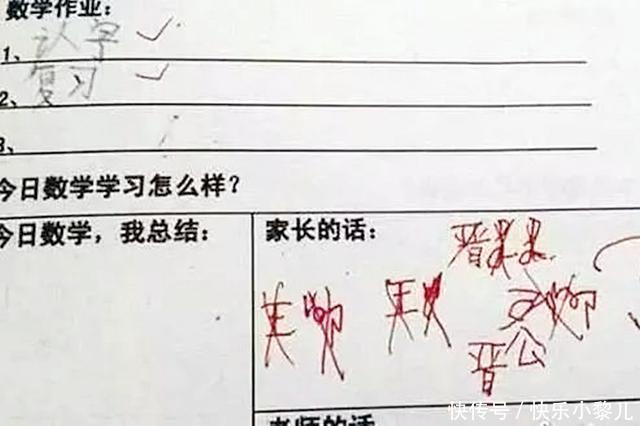 数学作业：
1、认字
2、复习
3、
今日数学学习怎么样？
今日数学，我总结：
家长的话：
晋
晋公
老师的话
快传号／快乐小黎儿